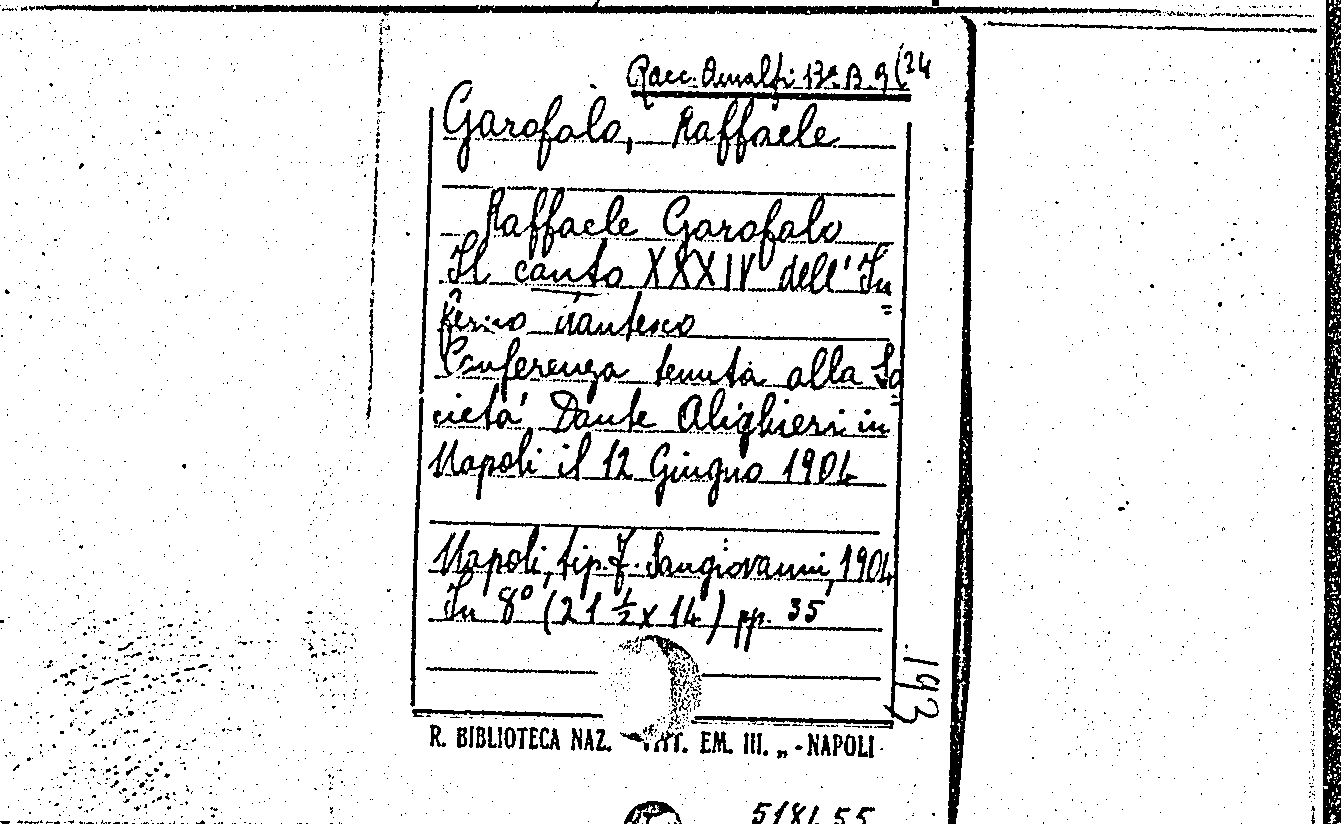 Racc. Amalfi 13a. B. 9(34
Garofalo, Raffaele
Raffaele Garofalo
Il canto XXXIV dell' In
ferno dantesco
Conferenza tenuta alla So
cietá Dante Alighieri in
Napoli il 12 Giugno 1904
Napoli, tip. F. Sangiovanni, 1904
In 8° (21 ½ x 14) pp. 35
193
R. BIBLIOTECA NAZ. VITT. EM. III. „ - NAPOLI